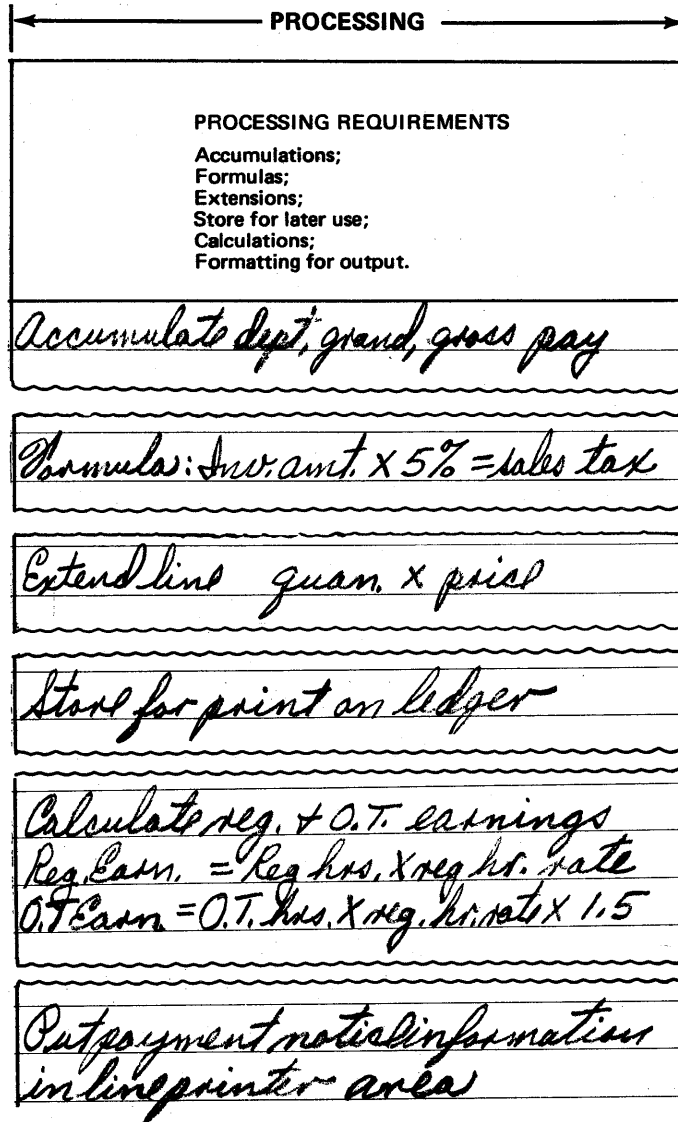 PROCESSING
PROCESSING REQUIREMENTS
Accumulations;
Formulas;
Extensions;
Store for later use;
Calculations;
Formatting for output.
Accumulate dept, grand, gross pay
Formula: Inv. amt. X 5% = sales tax
Extend line quan. X price
Store for print on ledger
Calculate reg. + O.T. earnings
Reg. Earn. = Reg hrs. X reg hr. rate
O.T Earn = O.T. hrs. X reg. hr. rate X 1.5
Put payment notice information
in line printer area